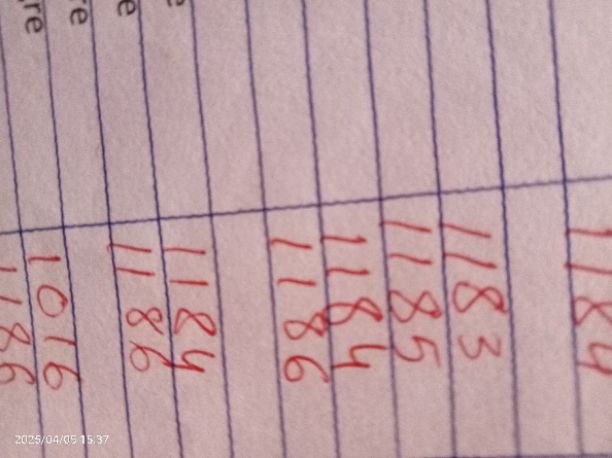 1184
1183
1185
1184
1186
e 1184
e 1186
re 1016
re 1186
2025/04/05 15:37